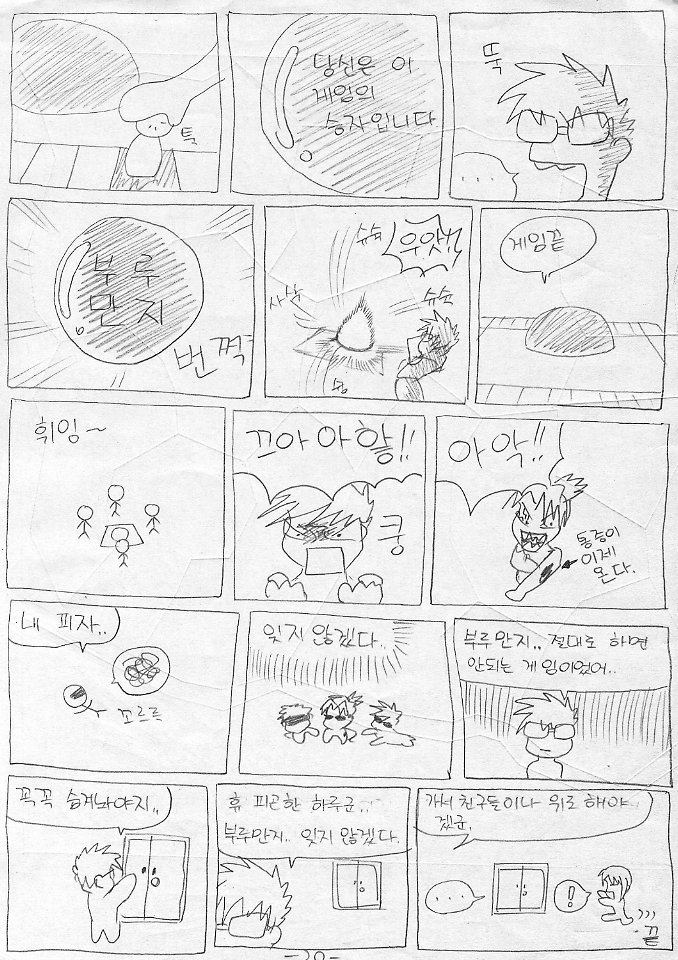 툭
당신은 이
게임의
승자입니다
뚝
...
부루
만지
번쩍
슈슉
우앗!!
샤샥
슈슉
게임끝
휘잉~
끄아아핳!!
쿵
아악!!
통증이
이제
온다.
내 피자..
꼬르륵
잊지 않겠다..
부루만지.. 절대로 하면
안되는 게임이었어..
꼭꼭 숨겨놔야지..
휴 피곤한 하루군..
부루만지.. 잊지 않겠다.
가서 친구들이나 위로 해야
겠군.
...
!
끝
-20-